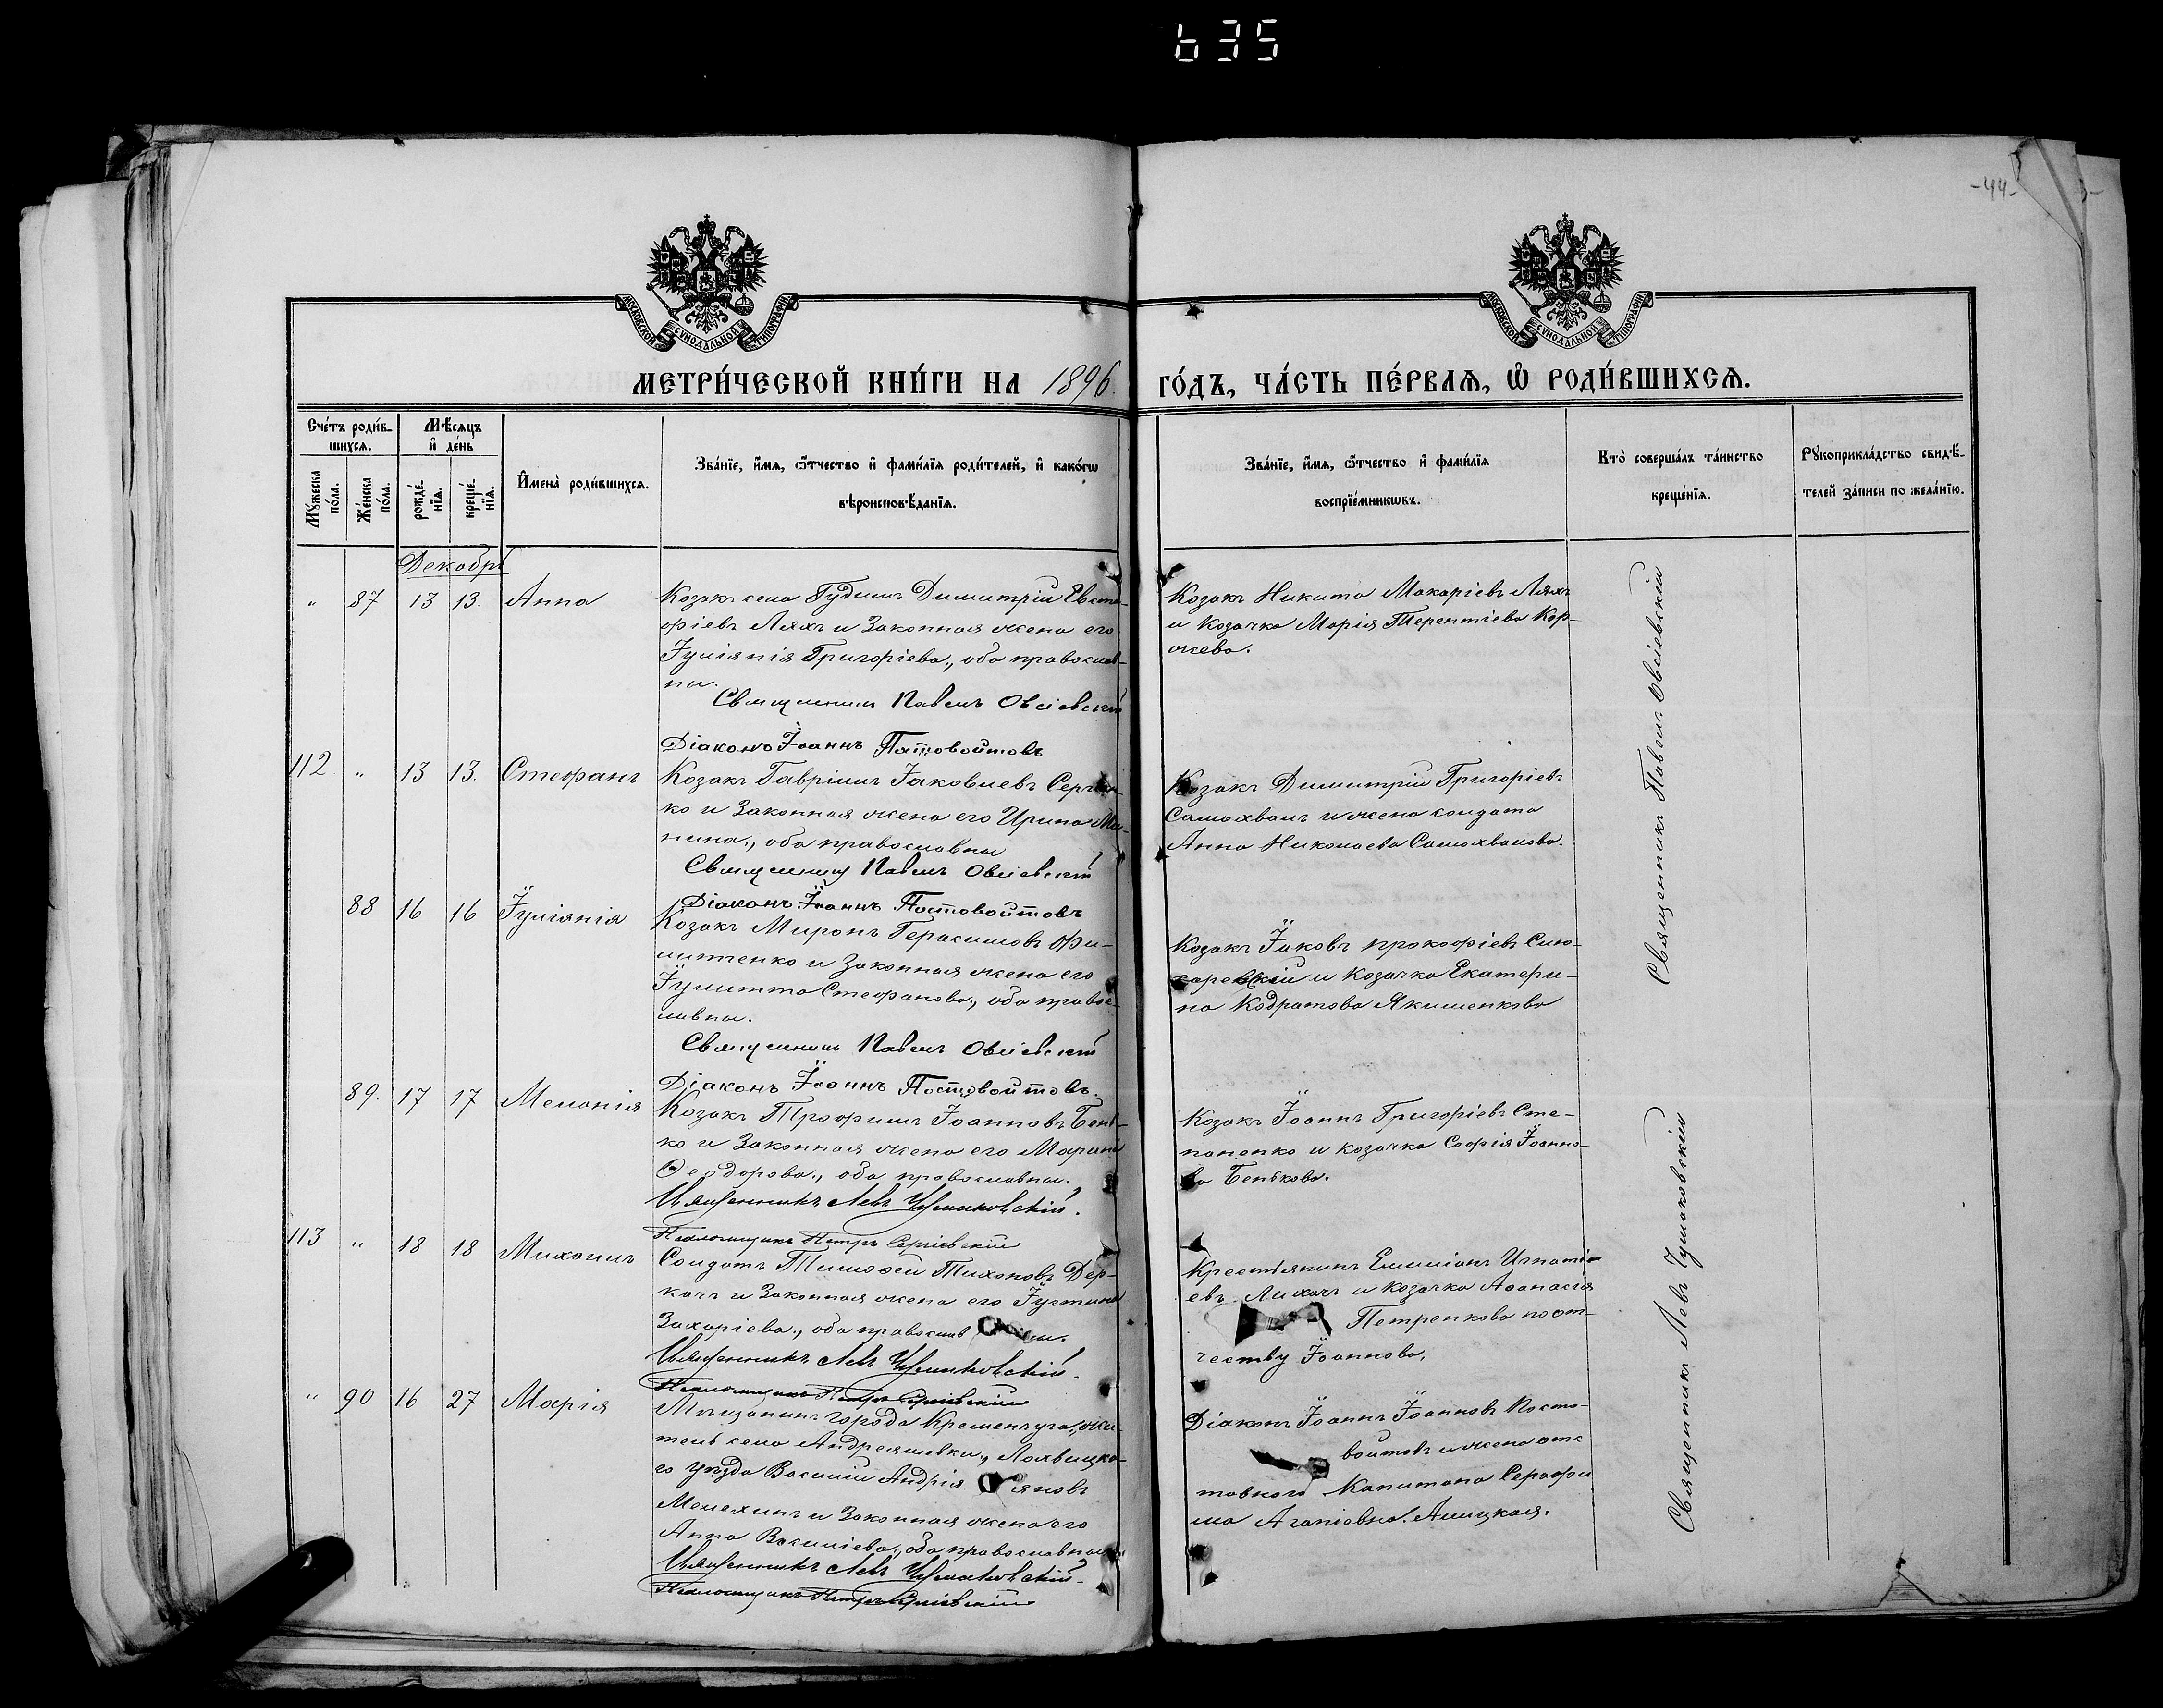 635
-44-
МОСКОВСКОЙ СУНОДАЛЬНОЙ ТИПОГРАФІИ
МОСКОВСКОЙ СУНОДАЛЬНОЙ ТИПОГРАФІИ
МЕТРИ́ЧЕСКОЙ КНИ́ГИ НА 1896 ГО́ДЪ, ЧА́СТЬ ПЕ́РВАѦ, Ѽ РОДИ́ВШИХСѦ.
Сче́тъ роди́в-
шихсѧ.
Мѣ́сѧцъ
и҆ де́нь
Мꙋ́жеска
по́ла.
Же́нска
по́ла.
рожде́-
нїѧ.
креще́-
нїѧ.
И҆мена̀ роди́вшихсѧ.
Зва́нїе, и҆́мѧ, ѻ҆́тчество и҆ фами́лїѧ роди́телей, и҆ како́гѡ
вѣроисповѣ́данїѧ.
Зва́нїе, и҆́мѧ, ѻ҆́тчество и҆ фами́лїѧ
воспрїе́мникѡвъ.
Кто̀ соверша́лъ та́инство
креще́нїѧ.
Рꙋкоприкла́дство свидѣ́-
телей за́писи по жела́нїю.
Декабрь
" 87 13 13. Анна
Козакъ села Гудимъ Димитрій Евста-
фіевъ Ляхъ и Законная жена его
Іуліянія Григоріева, оба православ-
ны.
Священникъ Павелъ Овсіевскій
Діаконъ Іоаннъ Постовойтовъ
Козакъ Никита Макаріевъ Ляхъ
и Козачка Марія Терентіева Кор-
жева.
112. " 13 13. Стефанъ
Козакъ Гавріилъ Іаковлевъ Сергіен-
ко и Законная жена его Ирина Ми-
нина, оба православны
Священникъ Павелъ Овсіевскій
Діаконъ Іоаннъ Постовойтовъ
Козакъ Димитрій Григоріевъ
Самохвалъ и жена солдата
Анна Николаева Самохвалова.
88 16 16 Іуліянія
Козакъ Миронъ Герасимовъ Фи-
липпенко и Законная жена его
Іулитта Стефанова, оба правос-
лавны.
Священникъ Павелъ Овсіевскій
Діаконъ Іоаннъ Постовойтовъ.
Козакъ Іаковъ Прокофіевъ Слю-
саревскій и Козачка Екатери-
на Кодратова Якименкова
89. 17 17 Меланія
Козакъ Трофимъ Іоанновъ Бень-
ко и Законная жена его Марина
Ѳеодорова, оба православны.
Священникъ Левъ Чушаковскій.
Псаломщикъ Петръ Сергіевскій
Козакъ Іоаннъ Григоріевъ Сте-
паненко и козачка Софія Іоанно-
ва Бенькова.
113 " 18 18 Михаилъ
Солдатъ Тимоѳей Тихоновъ Дер-
качъ и Законная жена его Іустина
Захаріева, оба православны.
Священникъ Левъ Чушаковскій.
Псаломщикъ Петръ Сергіевскій
Крестьянинъ Емиліанъ Игнатіе-
евъ Лихачъ и Козачка Аѳанасія
Петренкова по от-
честву Іоаннова.
" 90 16 27 Марія
Мѣщанинъ города Кременчуга, жи-
тель села Андреяшевки, Лохвицка-
го уѣзда Василій Андріяновъ
Мелехинъ и Законная жена его
Анна Василіева, оба православны
Священникъ Левъ Чушаковскій.
Псаломщикъ Петръ Сергіевскій
Діаконъ Іоаннъ Іоанновъ Посто-
войтовъ и жена отс
тавного Капитана Серафи
ма Агапіовна
Священникъ Павелъ Овсіевскій
Священникъ Левъ Чушаковскій